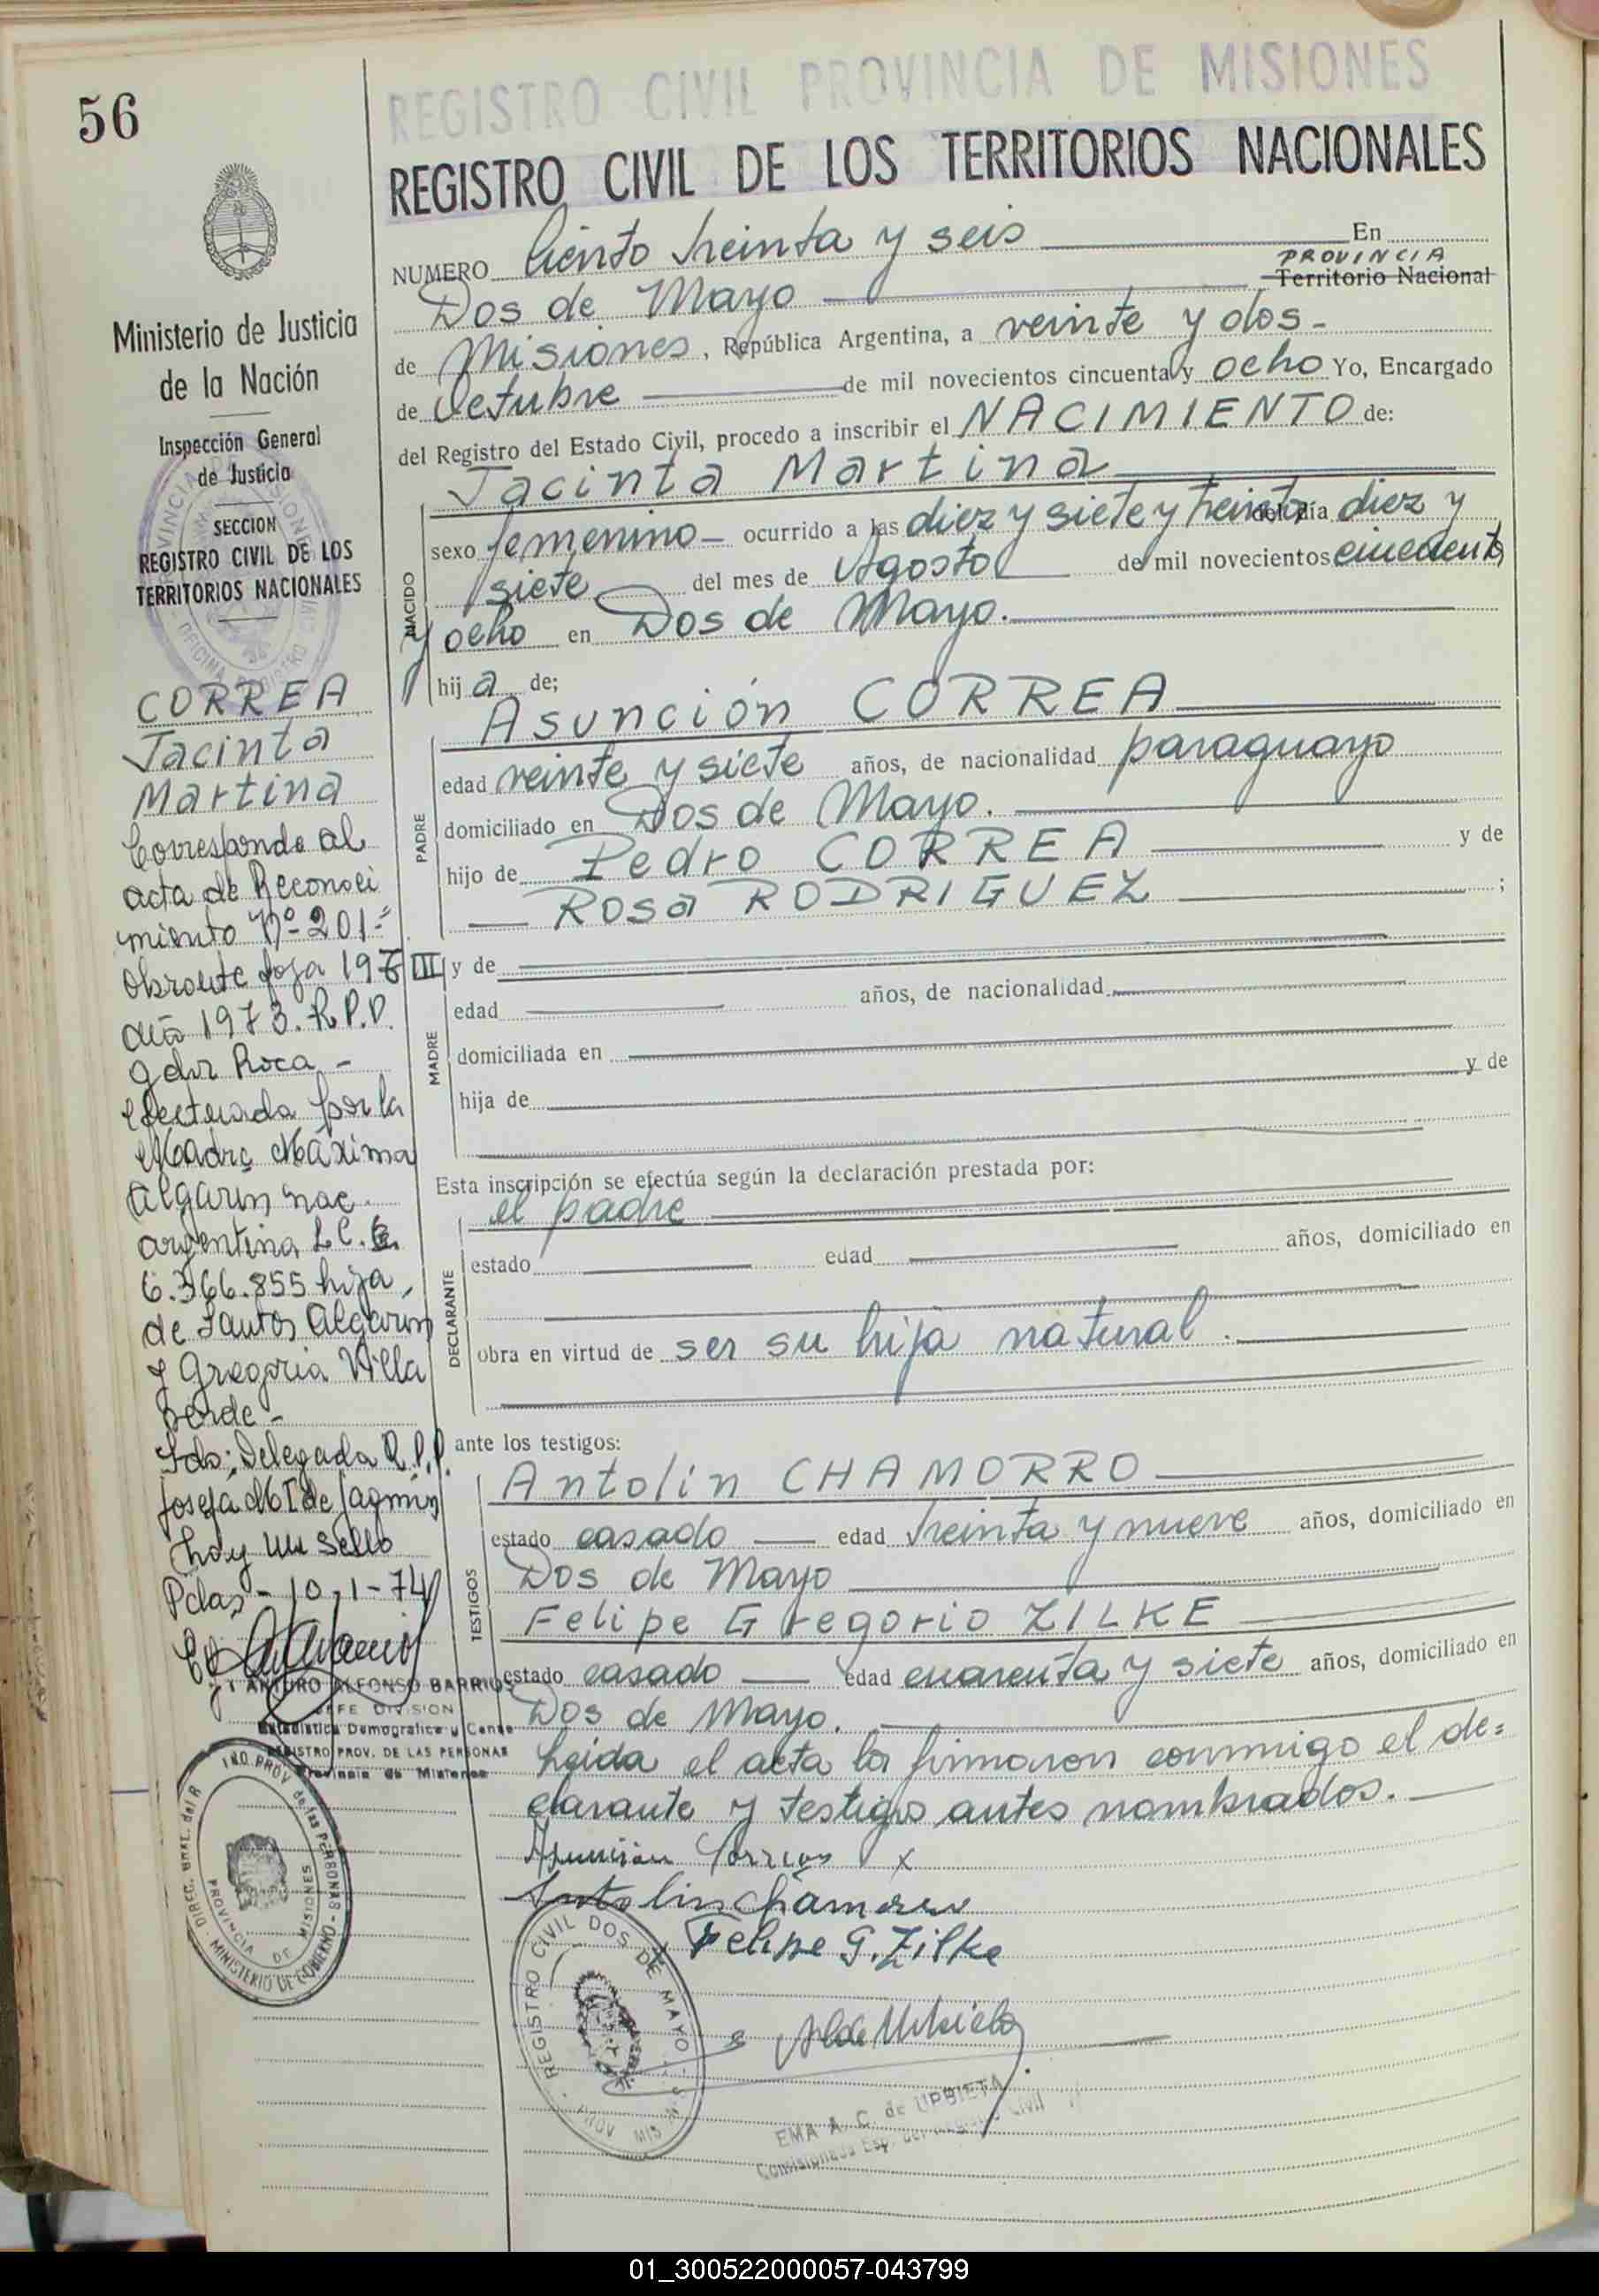 56
REGISTRO CIVIL PROVINCIA DE MISIONES
REGISTRO CIVIL DE LOS TERRITORIOS NACIONALES
Ministerio de Justicia
de la Nación
Inspección General
de Justicia
SECCION
REGISTRO CIVIL DE LOS
TERRITORIOS NACIONALES
CORREA
Jacinta
Martina
Corresponde al
acta de Reconoci
miento Nº 201
Obrante foja 197
año 1973. R.P.P.
Gdor Roca -
efectuada por la
Madre Máxima
Algarin nac.
argentina L.C.
6.366.855 hija
de Santos Algarin
y Gregoria Villa
verde -
Fdo: Delegada R.P.P.
Josefa M I de
hay un sello
Pdas - 10-1-74
ARTURO ALFONSO BARRIOS
JEFE DIVISION
Estadistica Demografica y Cense
REGISTRO PROV. DE LAS PERSONAS
Provincia de Misiones
DIREC. GRAL. del R PROV. de las PERSONAS - MINISTERIO DE GOBIERNO
PROVINCIA DE MISIONES
NUMERO Ciento treinta y seis En
Dos de Mayo PROVINCIA
Territorio Nacional
de Misiones, República Argentina, a veinte y dos -
de Octubre de mil novecientos cincuenta y ocho Yo, Encargado
del Registro del Estado Civil, procedo a inscribir el NACIMIENTO de:
Jacinta Martina
NACIDO
sexo femenino - ocurrido a las diez y siete y treinta del día diez y
siete del mes de Agosto de mil novecientos cincuenta
y ocho en Dos de Mayo.
hija de;
PADRE
Asunción CORREA
edad veinte y siete años, de nacionalidad paraguayo
domiciliado en Dos de Mayo.
hijo de Pedro CORREA y de
Rosa RODRIGUEZ ;
MADRE
III y de
edad años, de nacionalidad
domiciliada en
hija de y de
Esta inscripción se efectúa según la declaración prestada por:
DECLARANTE
el padre
estado edad años, domiciliado en
obra en virtud de ser su hija natural.
ante los testigos:
TESTIGOS
Antolin CHAMORRO
estado casado edad treinta y nueve años, domiciliado en
Dos de Mayo
Felipe Gregorio ZILKE
estado casado edad cuarenta y siete años, domiciliado en
Dos de Mayo.
Leida el acta la firmaron conmigo el de=
clarante y testigos antes nombrados.
Asunción Correa x
Antolin Chamorro
Felipe G. Zilke
REGISTRO CIVIL DOS DE MAYO
PROV MIS
EMA A. C. de URBIETA
01_300522000057-043799